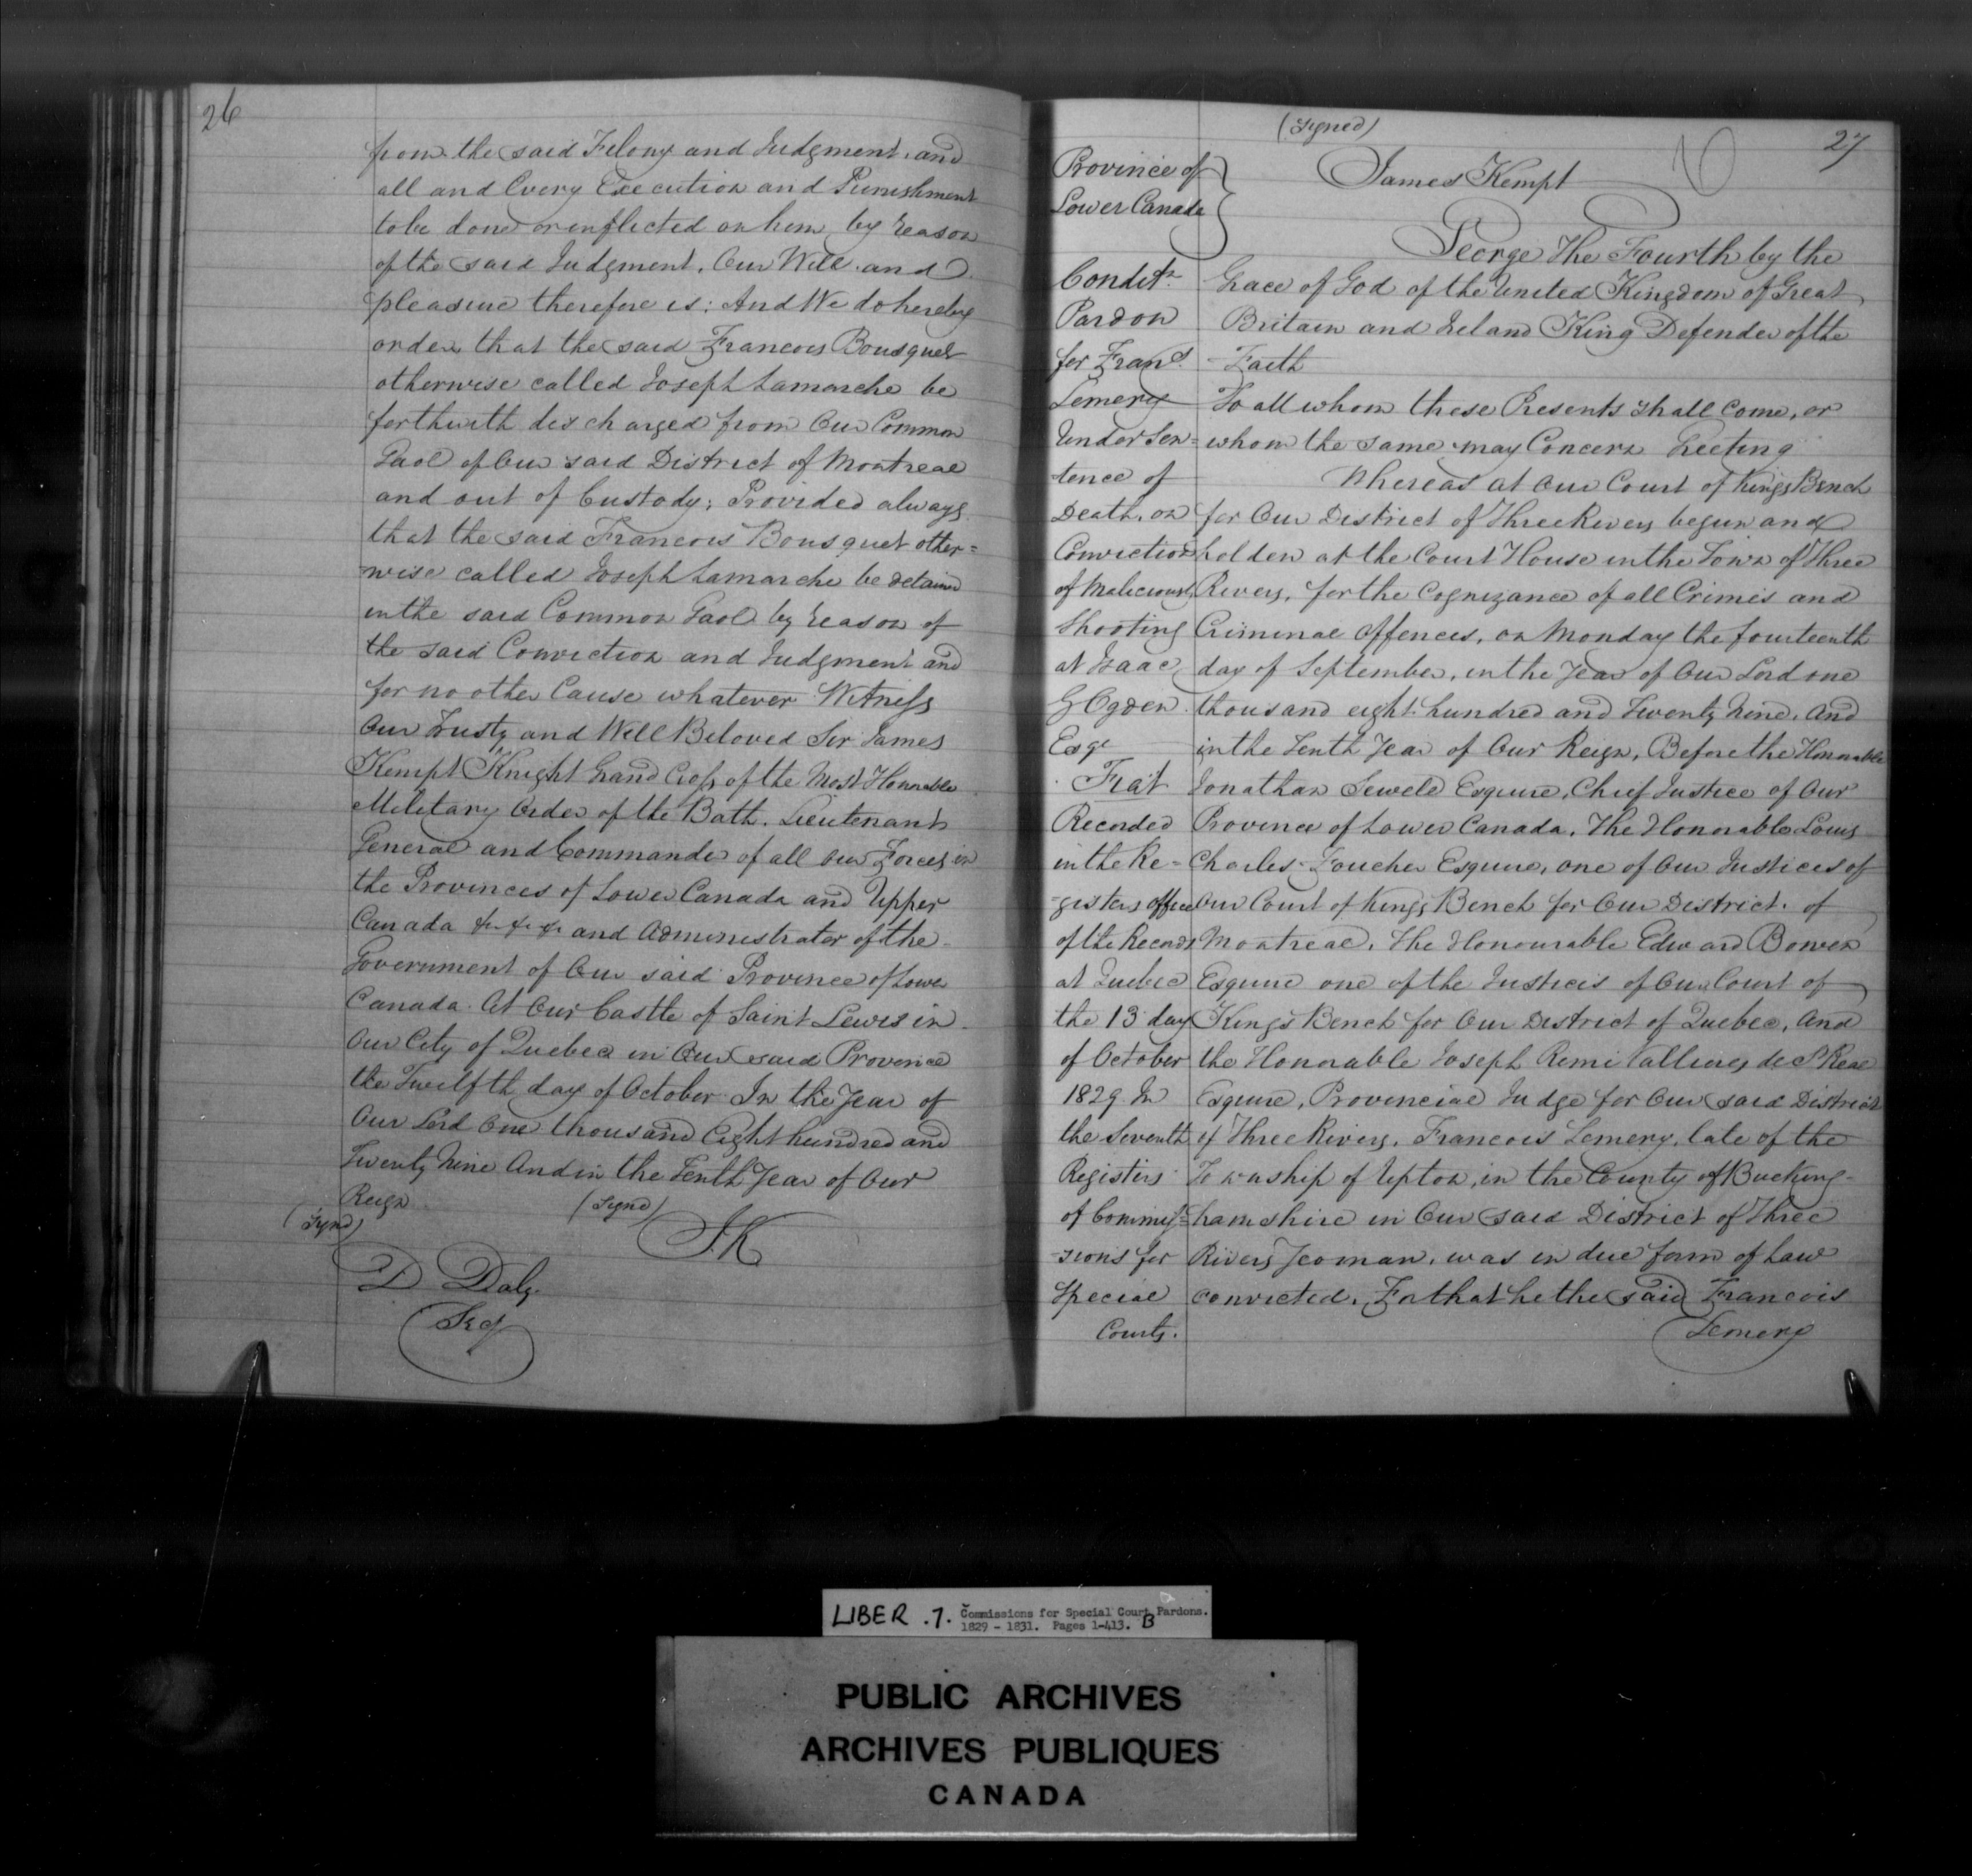 26
from the said Felony and Judgment, and
all and Every Execution and Punishment
to be done or inflicted on him, by reason
of the said Judgment. Our Will and
pleasure therefore is: And We do hereby
order that the said Francois Bousquet
otherwise called Joseph Lamarche be
forthwith discharged from Our Common
Gaol of Our said District of Montreal
and out of Custody; Provided always
that the said Francois Bousquet other=
wise called Joseph Lamarche be detained
in the said Common Gaol by reason of
the said Conviction and Judgment and
for no other Cause whatever Witness
Our Trusty and Well Beloved Sir James
Kempt Knight Grand Cross of the Most Honorable
Military Order of the Bath. Lieutenant
General and Commander of all our Forces in
the Provinces of Lower Canada and Upper
Canada &c &c &c and Administrator of the
Government of Our said Province of Lower
Canada. At Our Castle of Saint Lewis in
Our City of Quebec in Our said Province
the Twelfth day of October In the Year of
Our Lord One thousand Eight hundred and
Twenty Nine And in the Tenth Year of Our
Reign
(Signd) J.K
(Signd)
D Daly.
Secy
27
(Signed)
James Kempt
Province of
Lower Canada
Condit.
Pardon
for Frans.
Lemery
Under Sen=
tence of
Death, on
Conviction
of Malicious
Shooting
at Isaac
G Ogden
Esqe
Fiat
Recorded
in the Re=
=gisters office
of the Records
at Quebec
the 13 day
of October
1829 In
the Seventh
Registers
of Commis=
=sions for
Special
Courts.
George The Fourth by the
Grace of God of the United Kingdom of Great
Britain and Ireland King Defender of the
Faith
To all whom these Presents shall Come, or
whom the same may Concern Greeting
Whereas at Our Court of Kings Bench
for Our District of Three Rivers begun and
holden at the Court House in the Town of Three
Rivers, for the Cognizance of all Crimes and
Criminal Offences, on Monday the fourteenth
day of September, in the Year of Our Lord one
thousand eight hundred and Twenty Nine, And
in the Tenth Year of Our Reign, Before the Honorable
Jonathan Sewell Esquire, Chief Justice of Our
Province of Lower Canada, The Honorable Louis
Charles Foucher Esquire, one of Our Justices of
Our Court of Kings Bench for Our District of
Montreal, The Honourable Edward Bowen
Esquire one of the Justices of Our Court of
King's Bench for Our District of Quebec, And
the Honorable Joseph Remi Vallieres de St Real
Esquire, Provincial Judge for Our said District
of Three Rivers, Francois Lemery, late of the
Township of Upton, in the County of Bucking-
hamshire in Our said District of Three
Rivers Yeoman, was in due form of Law
convicted, For that he the said Francois
Lemery
LIBER .7. Commissions for Special Court Pardons.
1829 - 1831. Pages 1-413. B
PUBLIC ARCHIVES
ARCHIVES PUBLIQUES
CANADA